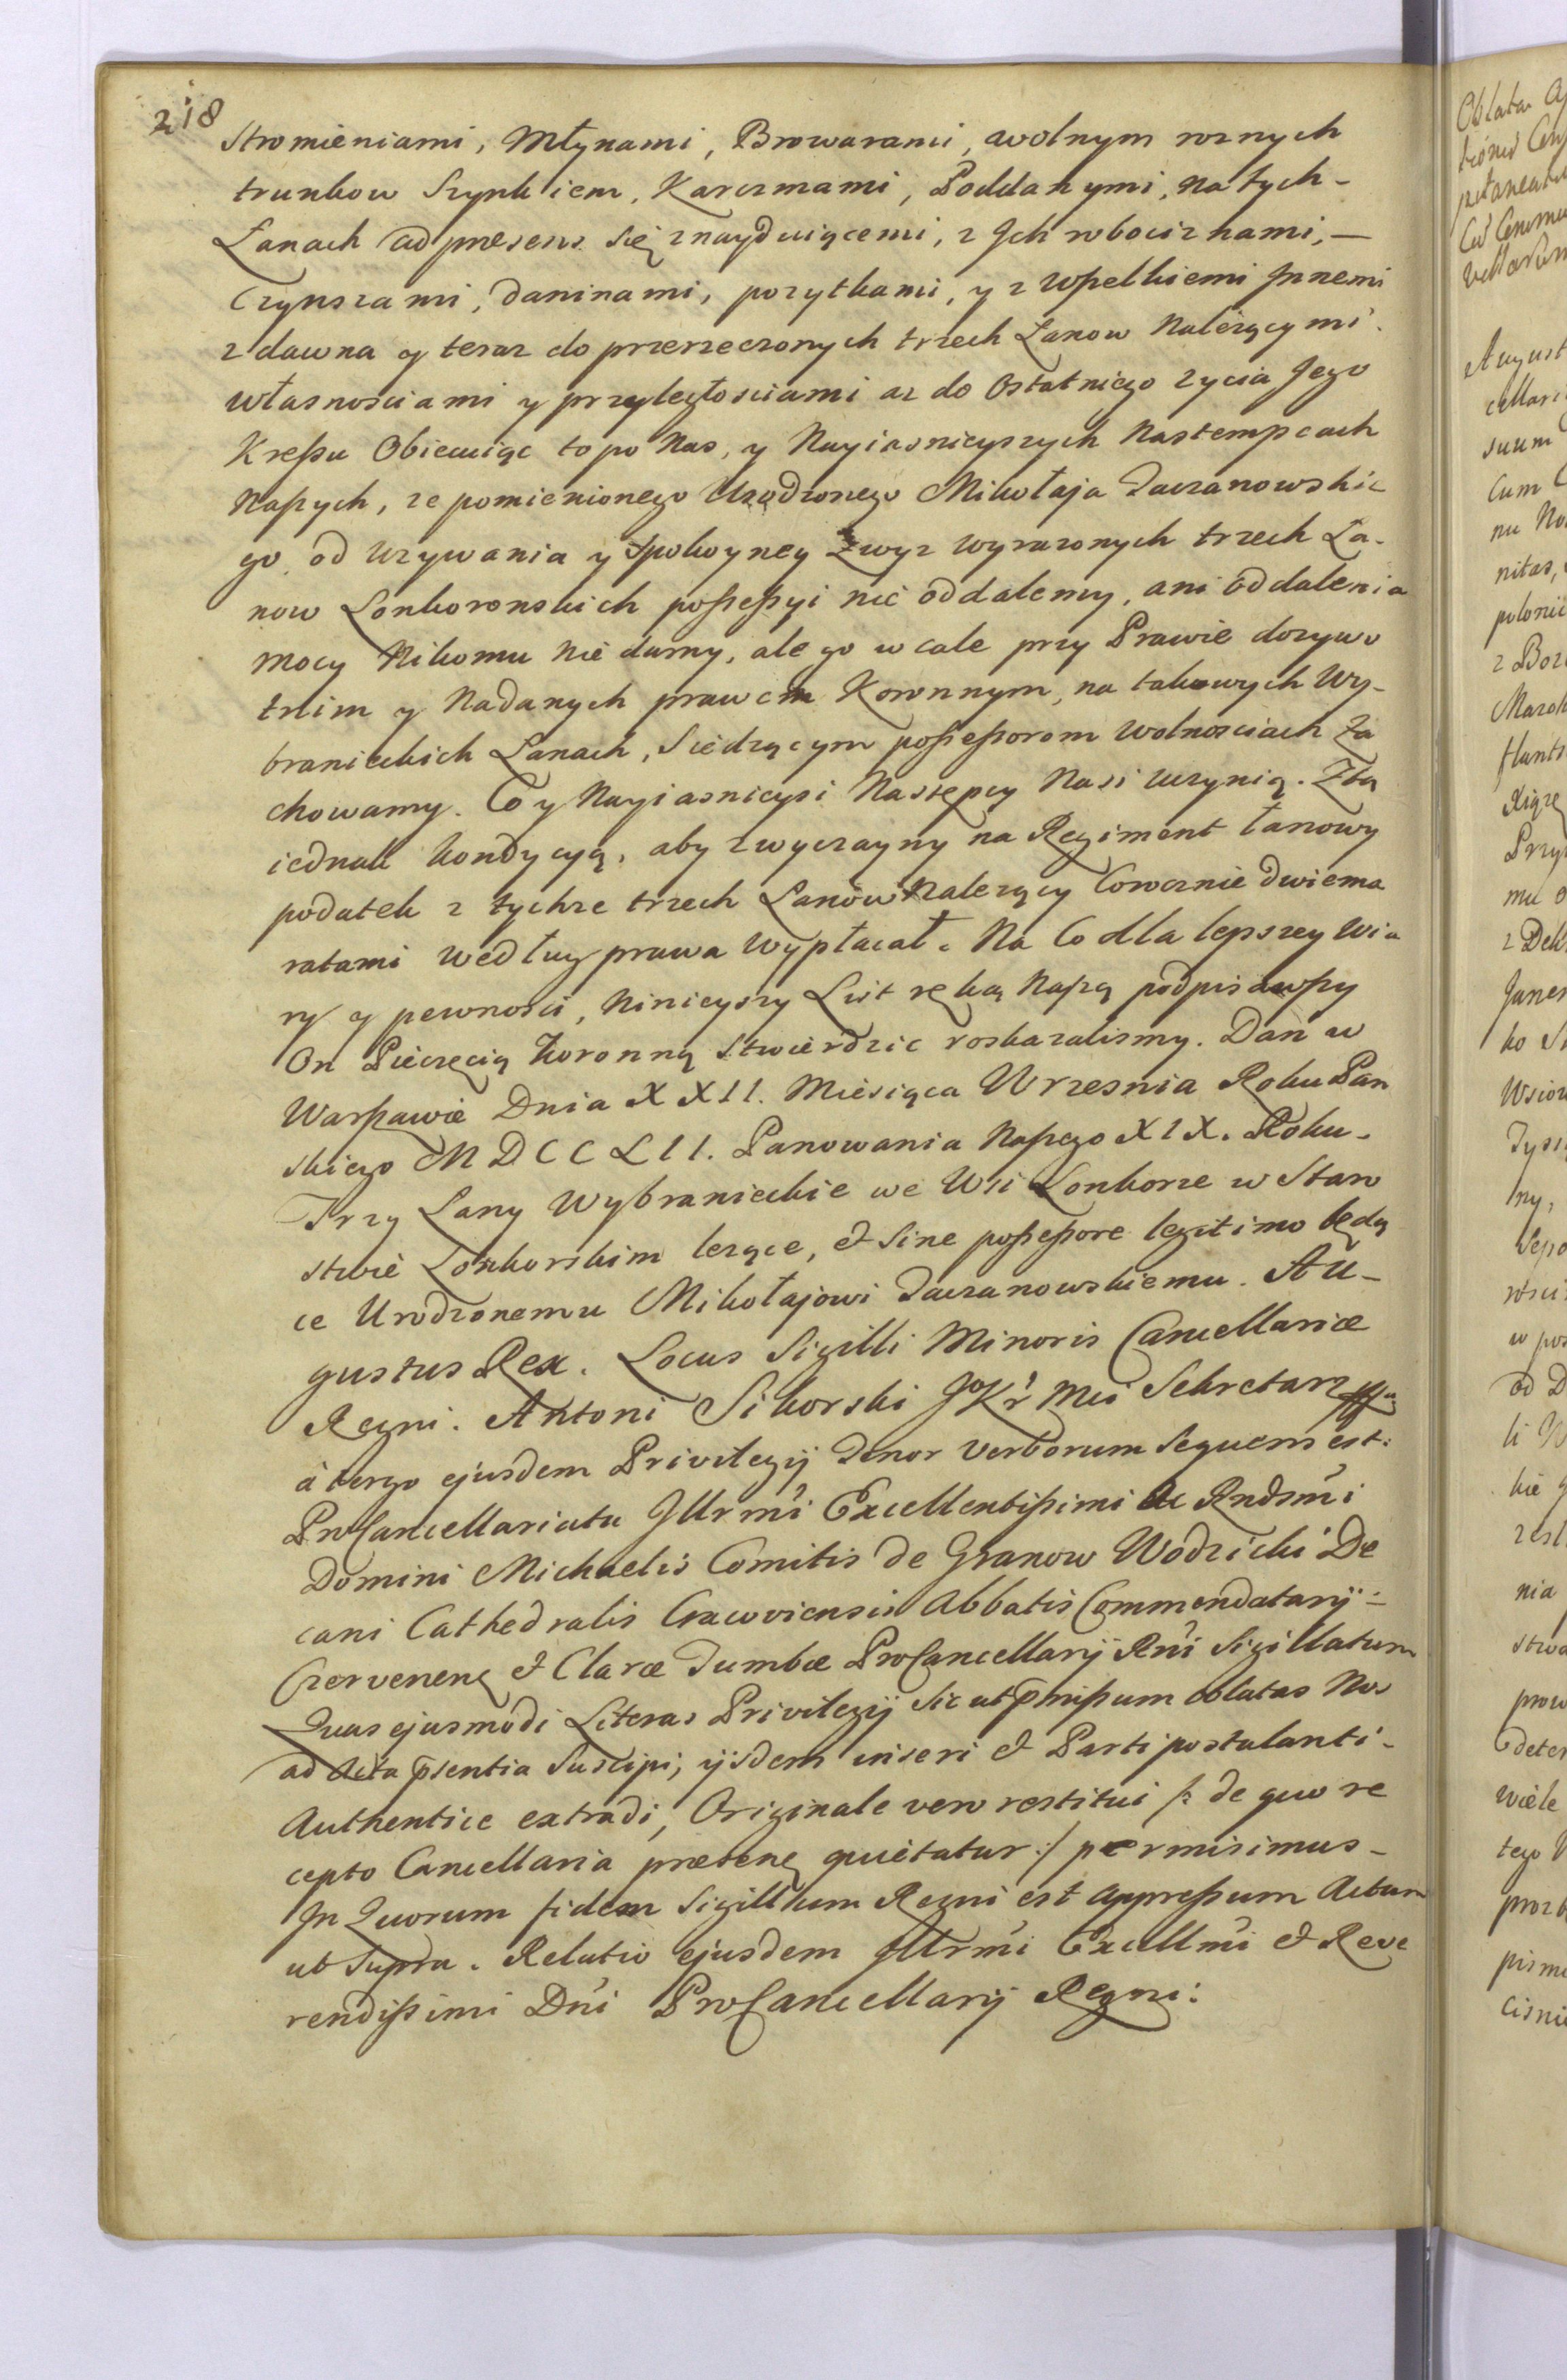 218
Stromieniami, Młynami, Browarami, wolnym roznych
trunkow Szynkiem, Karczmami, Poddanymi, na tych-
Łanach ad presens się znayduiącemi, z Jch robociznami,—
Czynszami, Daninami, pozytkami, y z wszelkiemi Jnnemi
z dawna y teraz do przerzeczonych trzech Łanow Nalezącymi.
własnosciami y przyległosciami az do Ostatniego zycia Jego
Kreßu Obiecuiąc to po Nas, y Nayiasnieyszych Nastempcach
Naßych, ze pomienionego Urodzonego Mikołaja Jaczanowskie
go od Uzywania y Spokoyney Zwyz wyrazonych trzech Ła-
now Lonkoronskich poßeßyi nie oddalemy, ani oddalenia
mocy Nikomu Nie damy, ale go w cale przy Prawie dozywo
tnim y Nadanych prawem Koronnym, na takowych Wy-
branieckich Łanach, Siedzącym poßeßorom Wolnosciach Za
chowamy. Co y Nayiasnieysi Nastepcy Nasi uczynią. Ztą
iednak kondycyą, aby zwyczayny na Regiment łanowy
podatek z tychze trzech Łanow Nalezący Corocznie dwiema
ratami według prawa wypłacał. Na Co dla lepszey wia
ry y pewnosci, Ninieyszy List ręką Naßą podpisawßy
On Pieczęcią Koronną Stwierdzic roskazalismy. Dan w
Warßawie Dnia XXII. Miesiąca Wrzesnia Roku Pan
skiego MDCCLII. Panowania Naßego XIX. Roku-
Trzy Łany Wybranieckie we Wsi Lonkorze w Staro
stwie Lonkorskim lezące, et Sine poßeßore legitimo będą
ce Urodzonemu Mikołajowi Jaczanowskiemu. Au-
gustus Rex. Locus Sigilli Minoris Cancellariæ
Regni. Antoni Sikorski JKr Mci Sekretarz
à tergo ejusdem Privilegij Tenor verborum Sequens est:
ProCancellariatu Jllrmi Excellentißimi ac Rndsmi
Domini Michaelis Comitis de Granow Wodzicki De
cani Cathedralis Cracoviensis Abbatis Commendatarij-
Czervenenę et Claræ Tumbæ ProCancellarij Rni Sigillatum
Quas ejusmodi Literas Privilegij Sic ut pmißum oblatas Nos
ad Acta psentia Suscipi, ijsdem inseri et Parti postulanti-
Authentice extradi, Originale vero restitui /: de quo re
cepto Cancellaria præsenę quietatur :/ permisimus-
Jn Quorum fidem Sigillum Regni est appreßum Actum
ut Supra. Relatio ejusdem Jllrmi Excellmi et Reve
rendißimi Dni ProCancellarij Regni: